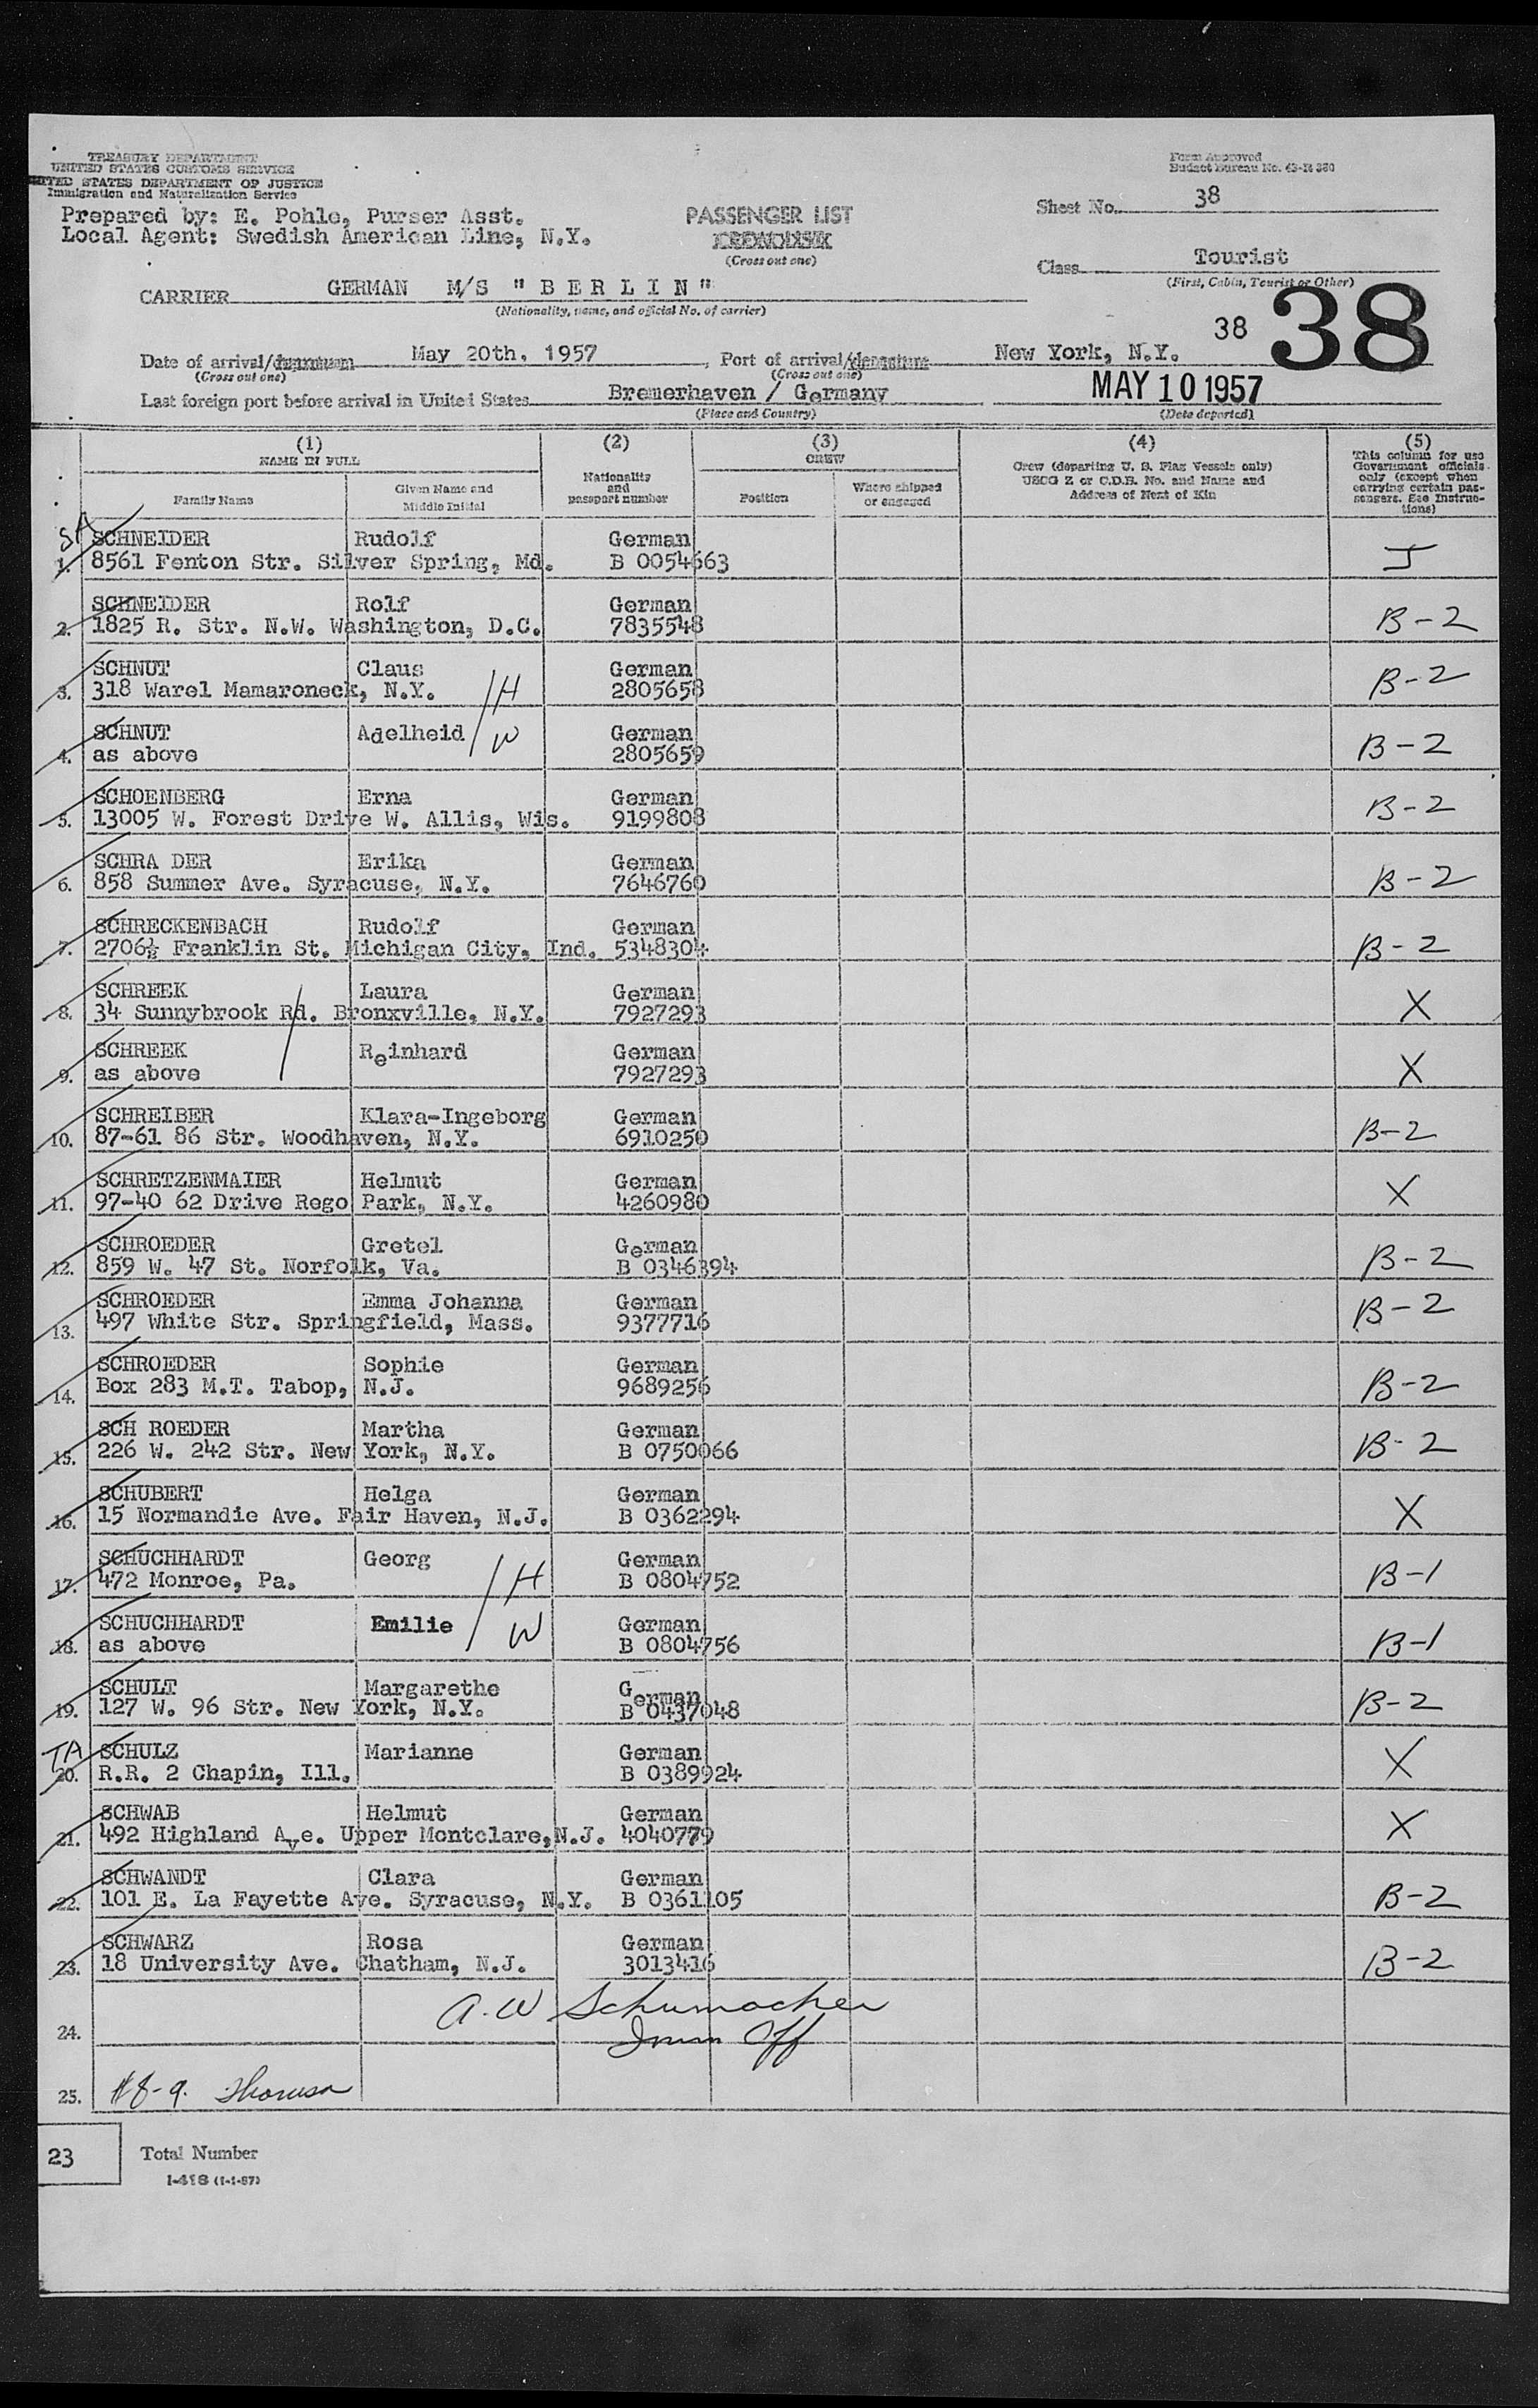 TREASURY DEPARTMENT
UNITED STATES CUSTOMS SERVICE
UNITED STATES DEPARTMENT OF JUSTICE
Immigration and Naturalization Service
Form Approved
Budget Bureau No. 43-R
Prepared by: E. Pohle, Purser Asst.
Local Agent: Swedish American Line, N.Y.
PASSENGER LIST
(Cross out one)
Sheet No. 38
Class Tourist
(First, Cabin, Tourist or Other)
CARRIER GERMAN M/S "BERLIN"
(Nationality, name, and official No. of carrier)
38 38
Date of arrival/departure May 20th, 1957, Port of arrival/departure New York, N.Y.
(Cross out one) (Cross out one)
Last foreign port before arrival in United States Bremerhaven / Germany MAY 10 1957
(Place and Country) (Date departed)
(1) NAME IN FULL
Family Name
Given Name and Middle Initial
(2) Nationality and passport number
(3) CREW
Position
Where shipped or engaged
(4) Crew (departing U. S. Flag Vessels only)
USCG Z or C.D.B. No. and Name and
Address of Next of Kin
(5) This column for use
Government officials
only (except when
carrying certain pas-
sengers. See Instruc-
tions)
SA
1. SCHNEIDER Rudolf German
8561 Fenton Str. Silver Spring, Md. B 0054663 J
2. SCHNEIDER Rolf German
1825 R. Str. N.W. Washington, D.C. 7835548 B-2
3. SCHNUT Claus German
318 Warel Mamaroneck, N.Y. H 2805658 B-2
4. SCHNUT Adelheid German
as above W 2805659 B-2
5. SCHOENBERG Erna German
13005 W. Forest Drive W. Allis, Wis. 9199808 B-2
6. SCHRA DER Erika German
858 Summer Ave. Syracuse, N.Y. 7646760 B-2
7. SCHRECKENBACH Rudolf German
2706½ Franklin St. Michigan City, Ind. 5348304 B-2
8. SCHREEK Laura German
34 Sunnybrook Rd. Bronxville, N.Y. 7927293 X
9. SCHREEK Reinhard German
as above 7927293 X
10. SCHREIBER Klara-Ingeborg German
87-61 86 Str. Woodhaven, N.Y. 6910250 B-2
11. SCHRETZENMAIER Helmut German
97-40 62 Drive Rego Park, N.Y. 4260980 X
12. SCHROEDER Gretel German
859 W. 47 St. Norfolk, Va. B 0346394 B-2
13. SCHROEDER Emma Johanna German
497 White Str. Springfield, Mass. 9377716 B-2
14. SCHROEDER Sophie German
Box 283 M.T. Tabop, N.J. 9689256 B-2
15. SCH ROEDER Martha German
226 W. 242 Str. New York, N.Y. B 0750066 B-2
16. SCHUBERT Helga German
15 Normandie Ave. Fair Haven, N.J. B 0362294 X
17. SCHUCHHARDT Georg German
472 Monroe, Pa. H B 0804752 B-1
18. SCHUCHHARDT Emilie German
as above W B 0804756 B-1
19. SCHULT Margarethe German
127 W. 96 Str. New York, N.Y. B 0437048 B-2
TA
20. SCHULZ Marianne German
R.R. 2 Chapin, Ill. B 0389924 X
21. SCHWAB Helmut German
492 Highland Ave. Upper Montclare, N.J. 4040779 X
22. SCHWANDT Clara German
101 E. La Fayette Ave. Syracuse, N.Y. B 0361105 B-2
23. SCHWARZ Rosa German
18 University Ave. Chatham, N.J. 3013416 B-2
A. W Schumacher
24. Imm Off
25. #8-9.
23 Total Number
I-418 (1-1-57)